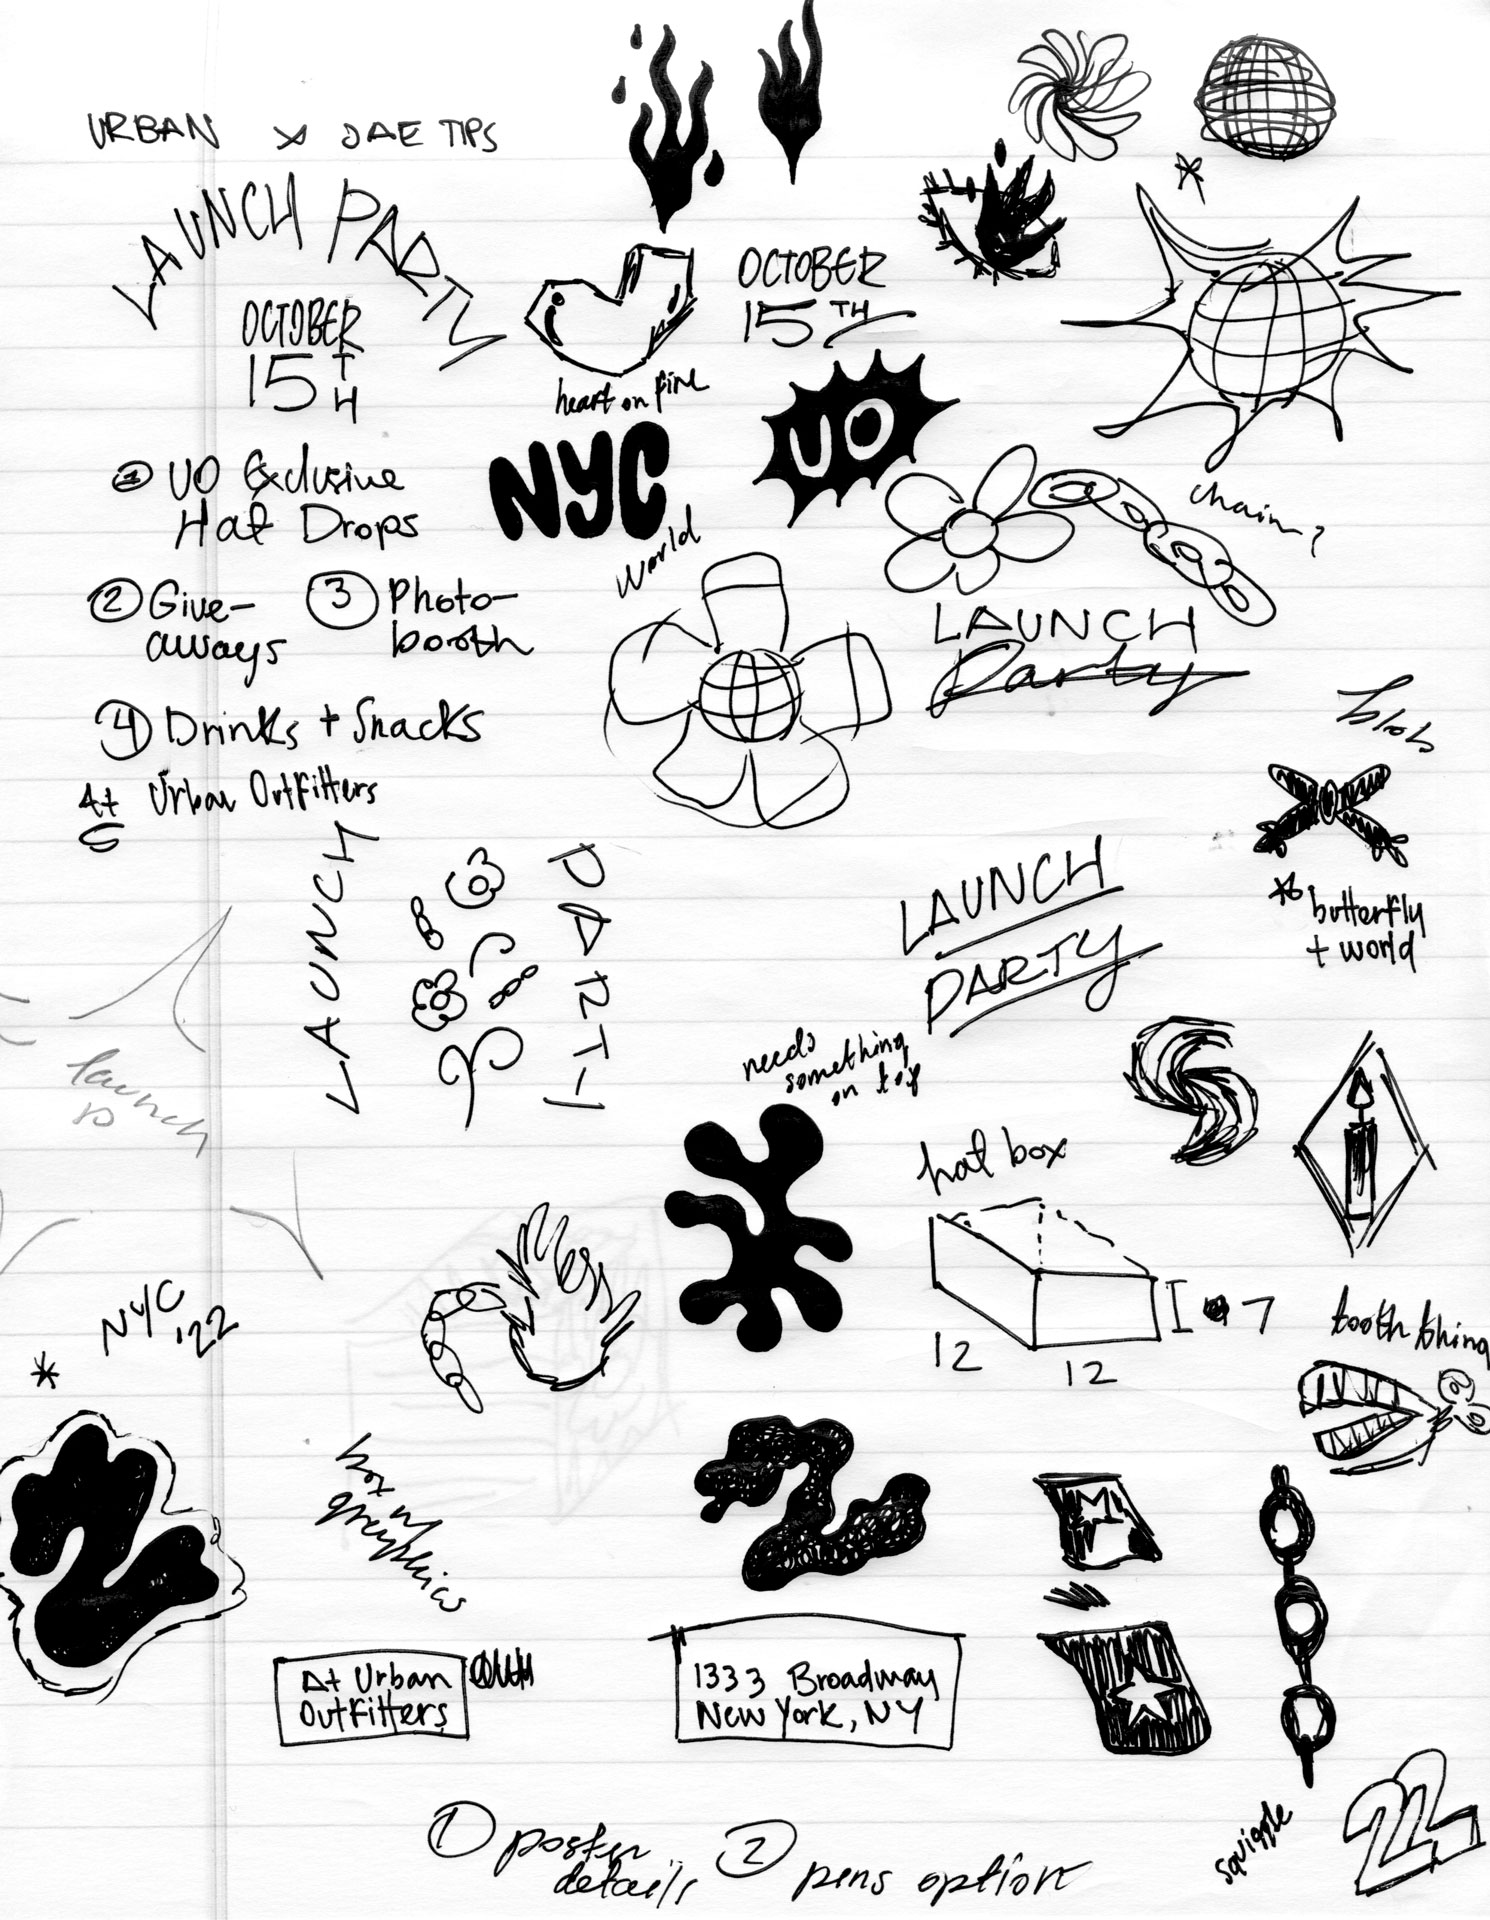 URBAN x JAE TIPS
LAUNCH PARTY
OCTOBER
15TH
heart on fire
OCTOBER
15TH
UO
NYC
World
chain?
1 UO Exclusive
Hat Drops
2 Give-
aways
3 Photo-
booth
4 Drinks + Snacks
At Urban Outfitters
LAUNCH
Party
blob
butterfly
+ world
LAUNCH
PARTY
LAUNCH
PARTY
needs
something
on top
launch
hat box
12
12
7
tooth thing
NYC
'22
graphics
At Urban
Outfitters
1333 Broadway
New York, NY
squiggle
22
1 poster
details
2 pens option